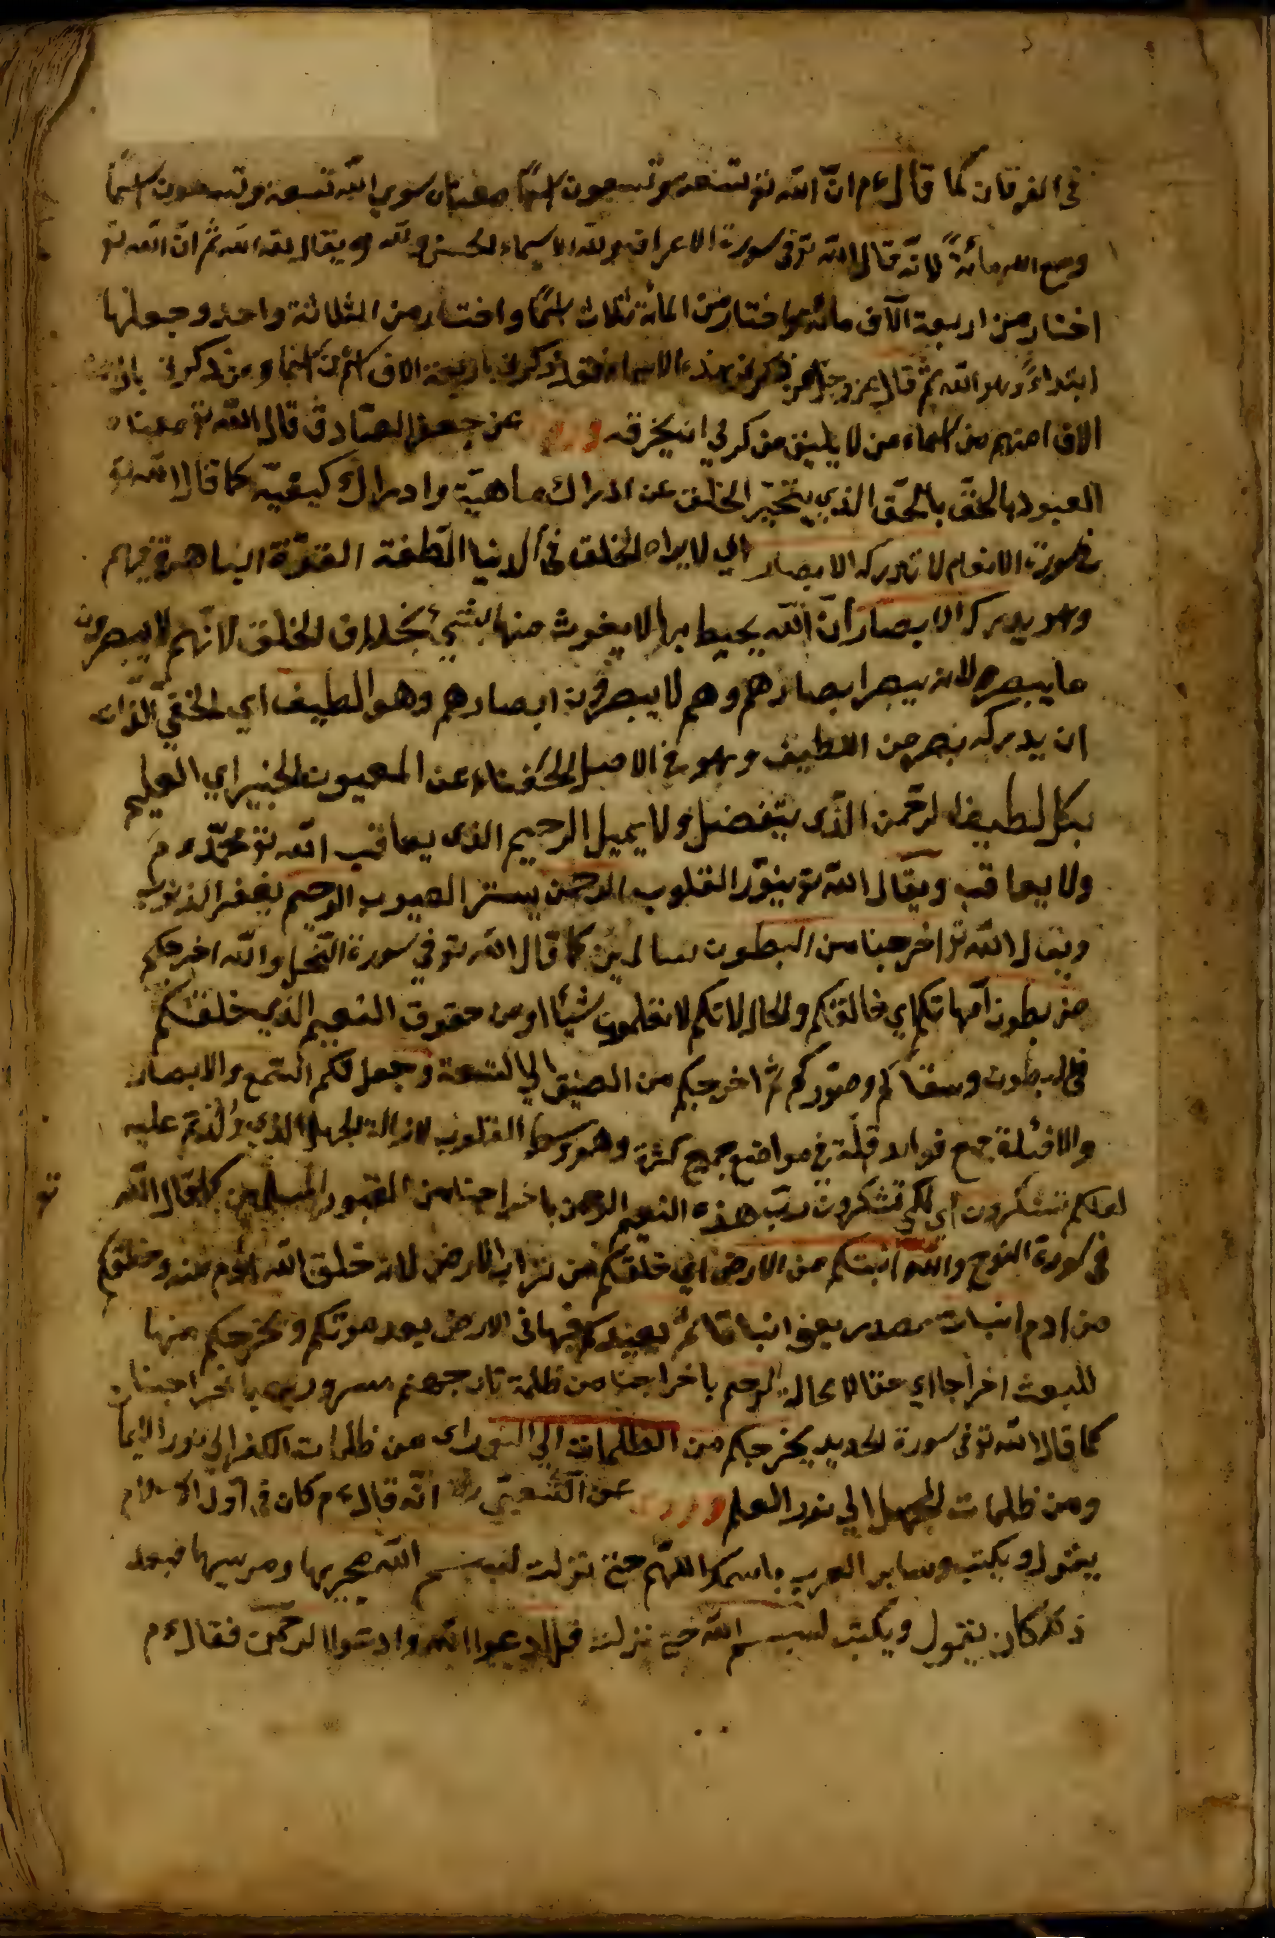 في الفرقان كما قال ءم ان الله تو تسعة وتسعون اسمًا معناه سوي الله تسعة وتسعون اسمًا
ومع الله مائةً لانه قال الله تو في سورة الاعراف ولله الاسماء الحسنى ويقال ان الله تو
اختار من اربعة الآف مائة واختار من المائة ثلاث اسمًا واختار من الثلاثة واحد وجعلها
ابتداءً وهو الله ثم قال عز وجل من ذكرني بهذه الاسماء فقد ذكرني باربعة الاف اسم ومن ذكرني
الاف اسم من اسماء من لا يليق من كرمي ان يحرقه عن جعفر الصادق قال الله تو معناه
المعبود بالحق بالحق الذي يتحير الخلق عن ادراك ماهية وادراك كيفية كما قال الله تو
في سورة الانعام لا تدركه الابصار اي لا يراه الخلق في الدنيا القوة الباهرة فيهم
وهو يدرك الابصار ان الله يحيط بها لا يغوث منها شيئ بخلاف الخلق لانهم لا يبصرون
ما يبصره لانه يبصر ابصارهم وهم لا يبصرون ابصارهم وهو اللطيف اي الخفي الذات
ان يدركه بصر من اللطيف وهو في الاصل الخفاء عن العيون الخبير اي العليم
بكل لطيف الرحمن الذي يتفضل ولا يميل الرحيم الذي يعاقب الله تو
ولا يعاقب ويقال الله تو ينور القلوب الرحمن يستر العيوب الرحيم يغفر الذنوب
ويقال الله تو اخرجنا من البطون سالمين كما قال الله تو في سورة النحل والله اخرجكم
من بطون امهاتكم اي خالقكم والحال لانكم لا تعلمون شيئا او من حقوق النعيم الذي خلقكم
في البطون وسقاكم وصوركم ثم اخرجكم من الضيق الي السعة وجعل لكم السمع والابصار
والافئدة جمع فواد قلة في مواضع جمع كثرة وهو وسط القلوب لازالة الجهل الذي ولدتم عليه
لعلكم تشكرون اي لكي تشكرون رب هذه النعيم الرحمن باخراجنا من القبور كما قال الله تو
في سورة النوح والله انبتكم من الارض اي خلقكم من تراب الارض لانه خلق الله آدم منه وخلقكم
من ادم انبات مصدر يعني انباتا ثم يعيدكم فيها في الارض بعد موتكم ويخرجكم منها
للبعث اخراجا اي حقا لا محالة الرحيم باخراجنا من ظلمة نار جهنم
كما قال الله تو في سورة الحديد يخرجكم من الظلمات الي النور اي من ظلمات الكفر الي نور الايمان
ومن ظلمات الجهل الي نور العلم عن الشعبي رض انه قال ءم كان في اول الاسلام
يقول ويكتب وساير العرب باسمك اللهم حتى نزلت بسم الله مجريها ومرسيها فبعد
ذلك كان يقول ويكتب بسم الله حتى نزلت قل ادعوا الله وادعوا الرحمن فقال ءم